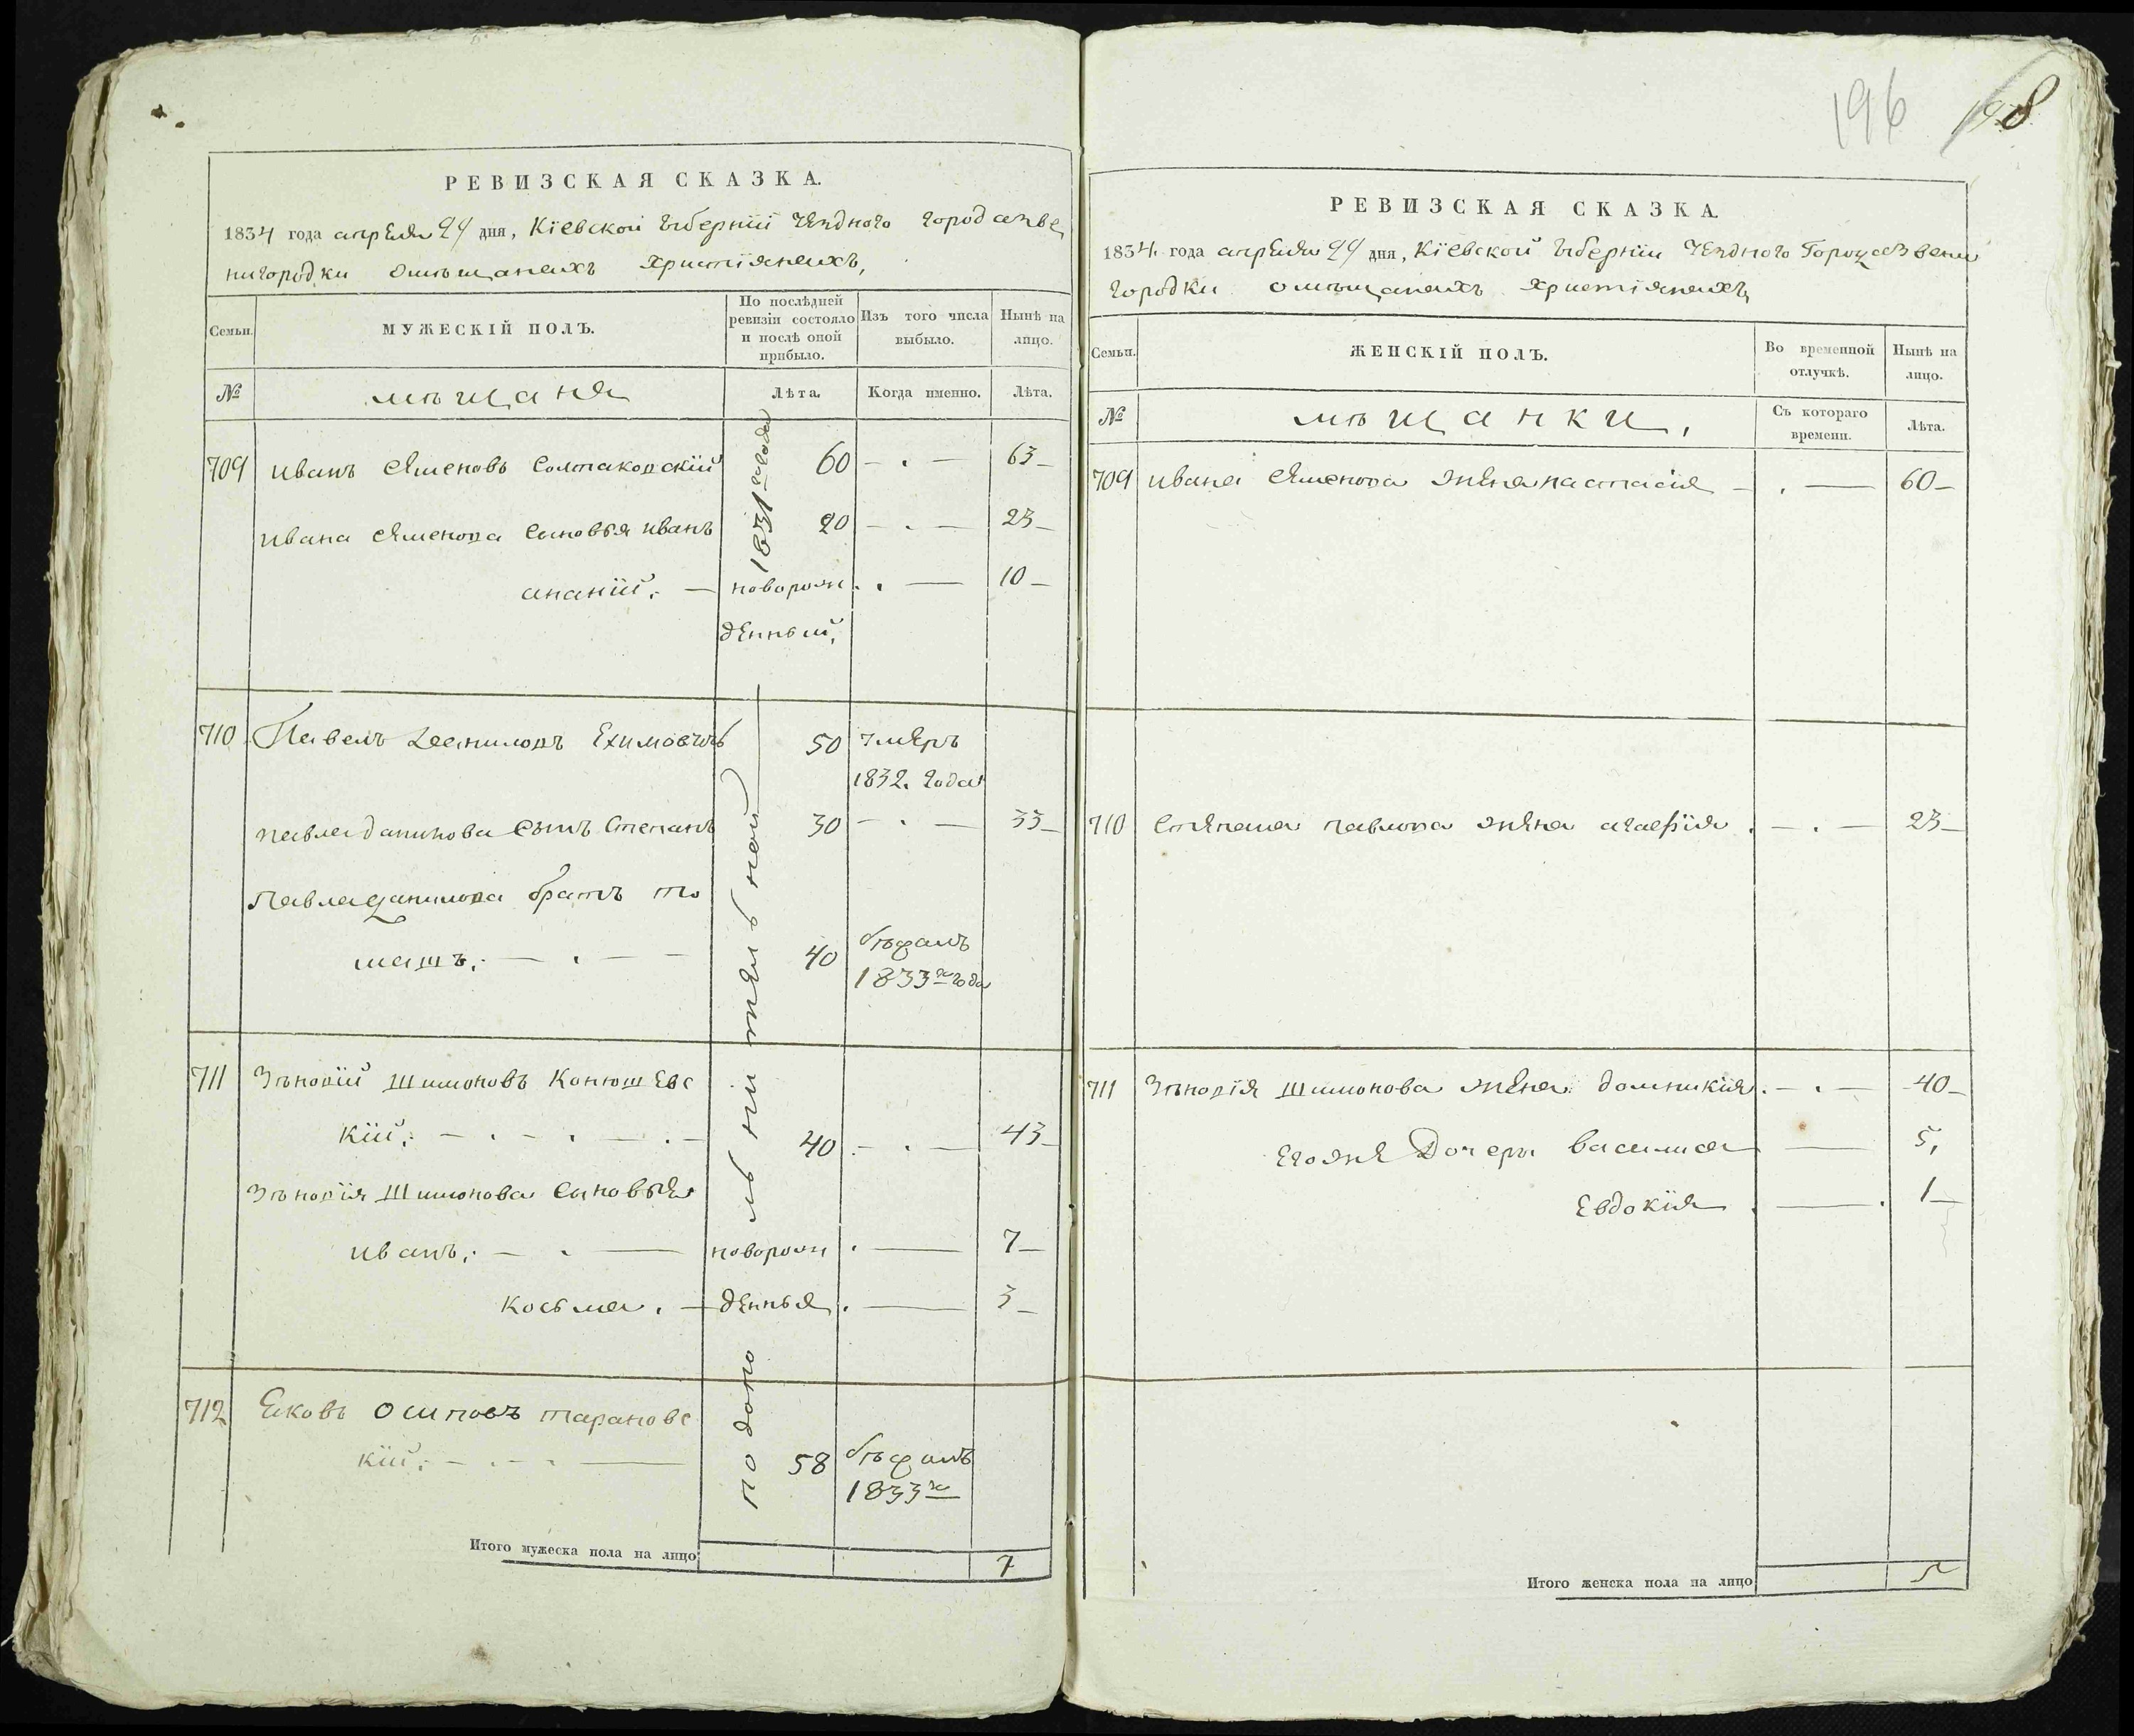 196 198
РЕВИЗСКАЯ СКАЗКА.
1834 года апреля 24 дня, Кіевской губерніи уездного города зве
нигородки омещанахъ христіянахъ,
Семьи.
МУЖЕСКІЙ ПОЛЪ.
По послѣдней ревизіи состояло и послѣ оной прибыло.
Изъ того числа выбыло.
Нынѣ на лицо.
№
мещаня
Лѣта.
Когда именно.
Лѣта.
1831го года
по дополнительной
709 иванъ семеновъ 60 63
ивана семенова сыновья иванъ 20 23
ананій. новорож 10
денный,
710 Павелъ Даниловъ Ехимовичъ 50 умеръ
1832. года
павла данилова сынъ Степанъ 30 33
Павла данилова братъ то
машъ. 40 бежалъ
1833го года
711 Зеновій Шимоновъ Конюшевс
кій. 40 43
Зеновія Шимонова сыновья
иванъ. новорож 7
косьма. денныя. 3
712 Яковъ Осиповъ тарановс
кій. 58 бежалъ
1833го
Итого мужеска пола на лицо 7
РЕВИЗСКАЯ СКАЗКА.
1834. года апреля 24 дня, Кіевской губерніи уездного Города звени
городки омещанахъ христіянахъ
Семьи.
ЖЕНСКІЙ ПОЛЪ.
Во временной отлучкѣ.
Нынѣ на лицо.
№
мещанки,
Съ котораго времени.
Лѣта.
709 ивана семенова жена настасія 60
710 степана павлова жена агафія. 23
711 Зеновія Шимонова жена домникія. 40
егоже Дочери василиса 5,
Евдокія 1
Итого женска пола на лицо 5